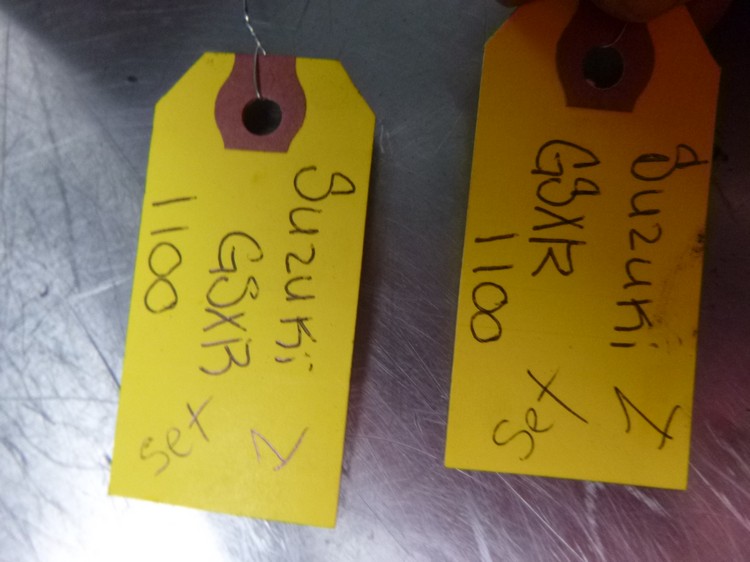 Suzuki
GSXR
1100
Set
1
Suzuki
GSXR
1100
Set